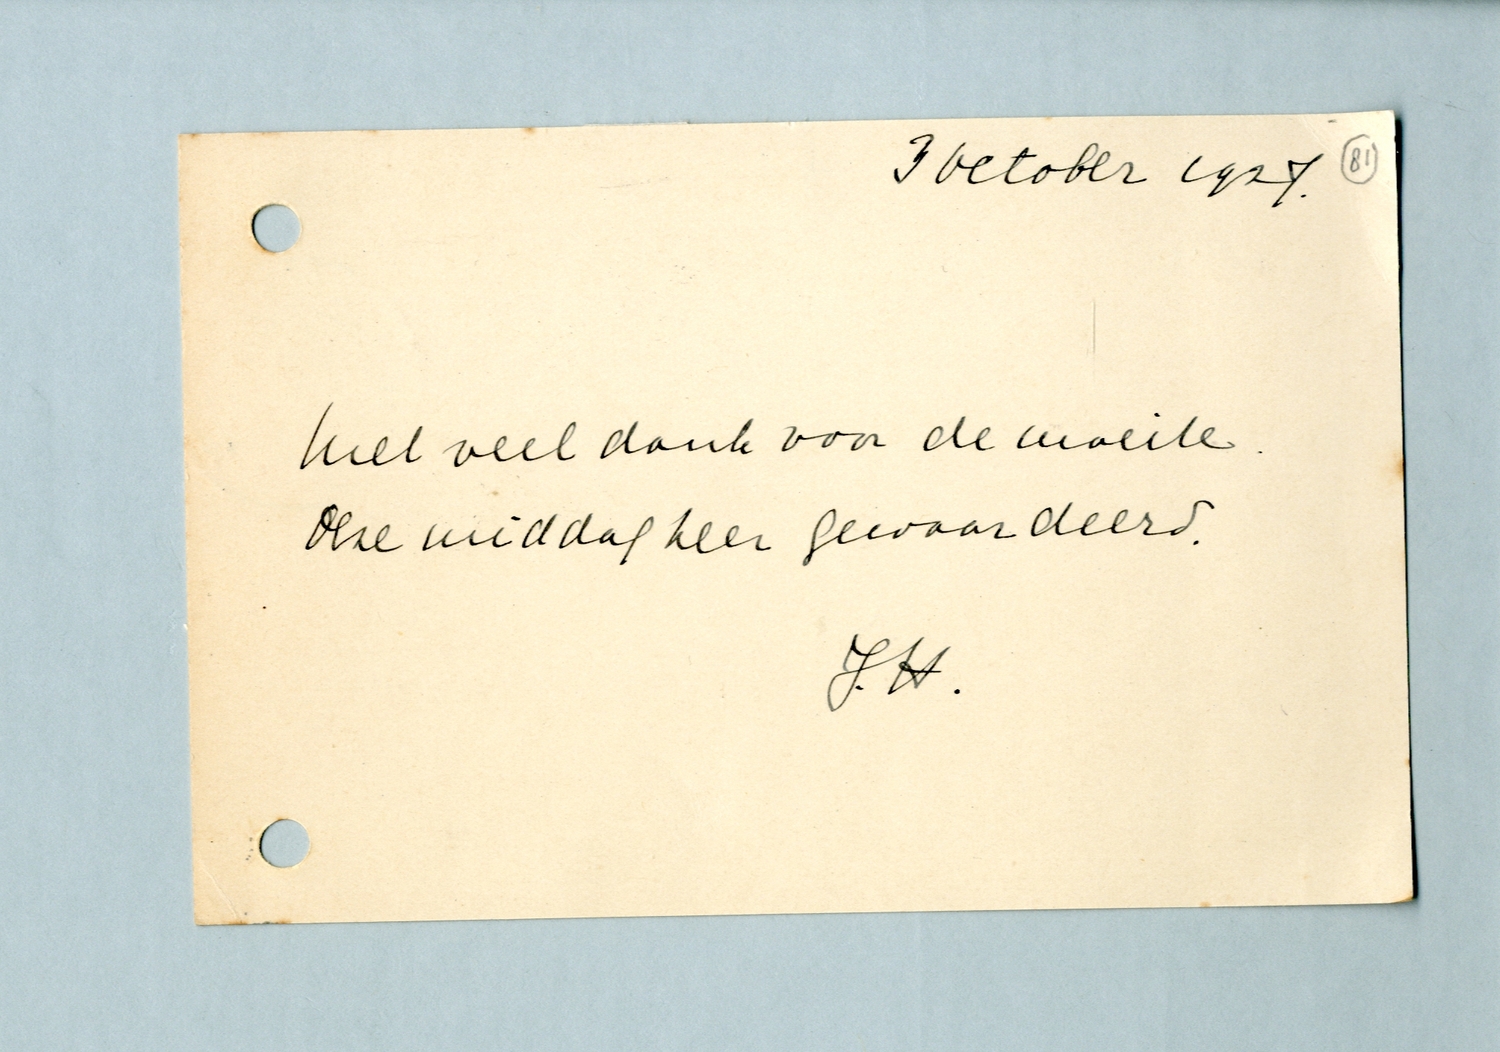 3 October 1927.
81
Met veel dank voor de moeite.
Deze middag zeer gewaardeerd.
J.H.